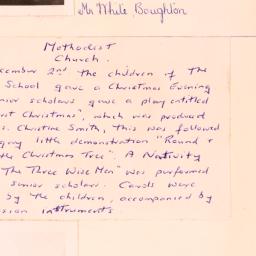 Mr White Boughton
Methodist
Church.
cember 2nd the children of The
School gave a Christmas Evening
nior scholars gave a play entitled
st Christmas", which was produced
s. Christine Smith, this was followed
gay little demonstration "Round
the Christmas Tree". A Nativity
"The Three Wise Men" was performed
senior scholars. Carols were
by the children, accompanied by
ssion instruments.